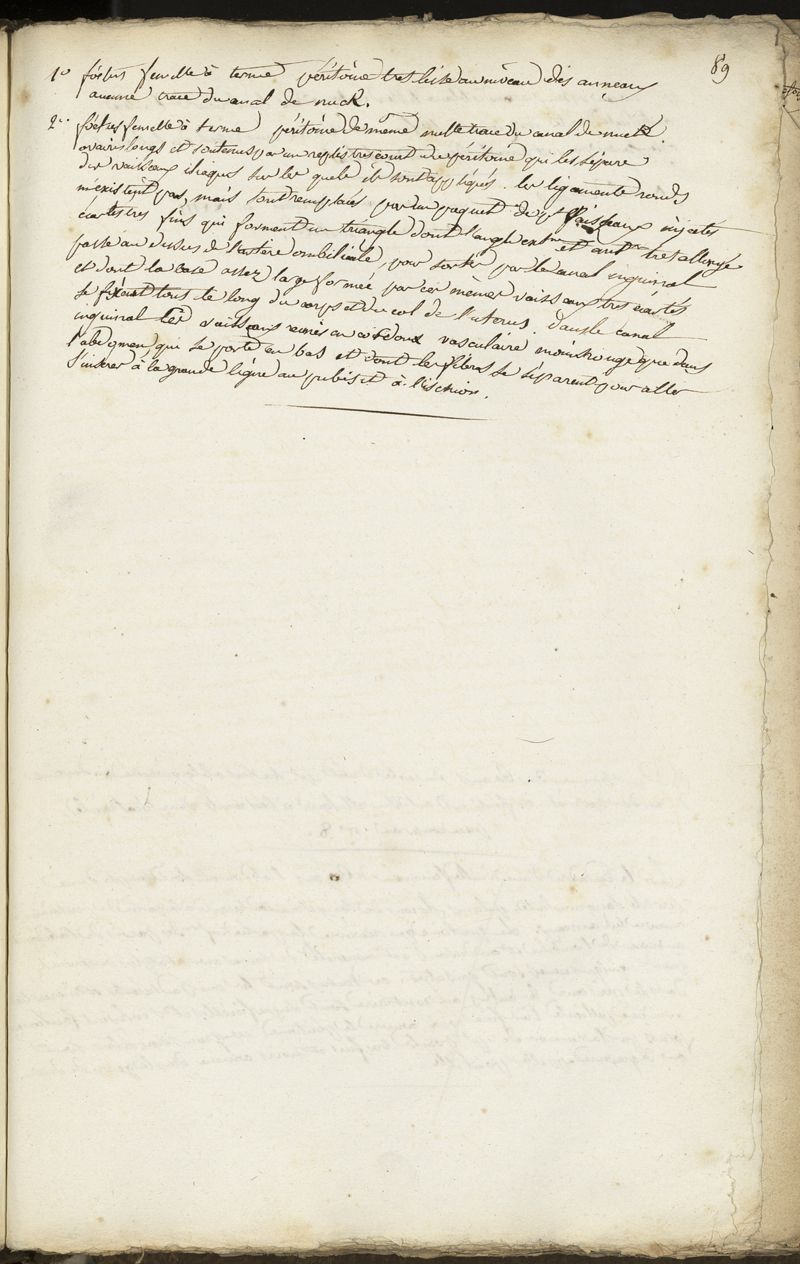 89
1º foetus femelle à terme péritoine tres lisse au niveau des anneaux
aucune trace du canal de nuck.
2º. foetus femelle à terme péritoine de même nulle trace du canal de nuck.
ovaires longs et soutenus par un repli tres court du péritoine qui les sépare
des vaisseaux iliaques sur les quels ils sont appliqués. les ligaments ronds
n'existent pas, mais sont remplacés par un paquet de pts vaisseaux injectés
écartés tres fins qui forment un triangle dont l'angle extne et antr tres allongé
passe au dessus de l'artère ombilicale pour sortir par le canal inguinal
et dont la base assez large formée par ces mêmes vaisseaux tres écartés
se fixent tous le long du corps et du col de l'uterus. dans le canal
inguinal les vaisseaux réunis en cordoux vasculaire moins rouge que dans
l'abdomen, qui se porte en bas et dont les fibres se séparent pour aller
s'insérer à la grande lèvre au pubis et à l'ischion.